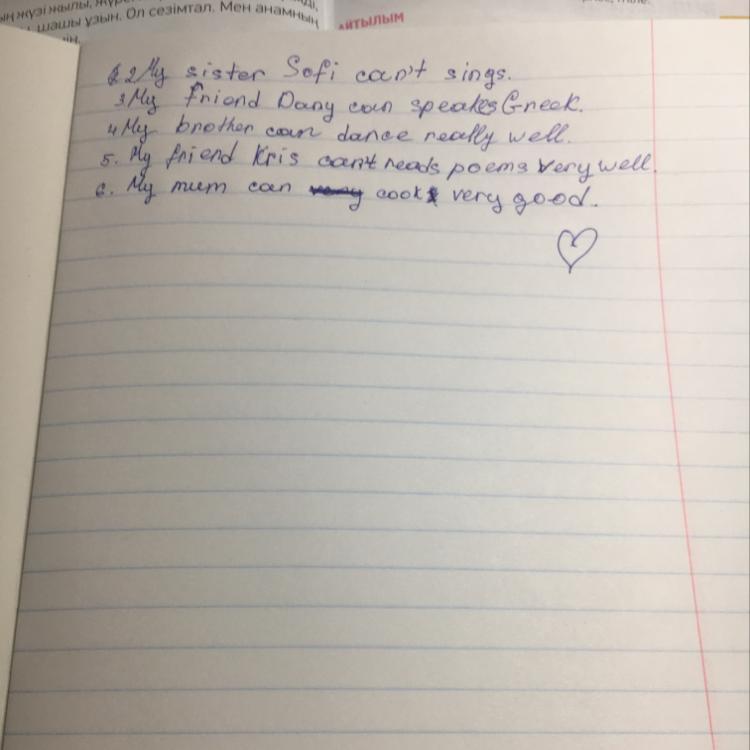 ың жүзі жылы,
шашы ұзын. Ол сезімтал. Мен анамның
АЙТЫЛЫМ
2 My sister Sofi can't sings.
3 My friend Dany can speakes Greek.
4 My brother can dance really well.
5. My friend Kris can't reads poems very well.
6. My mum can cook very good.